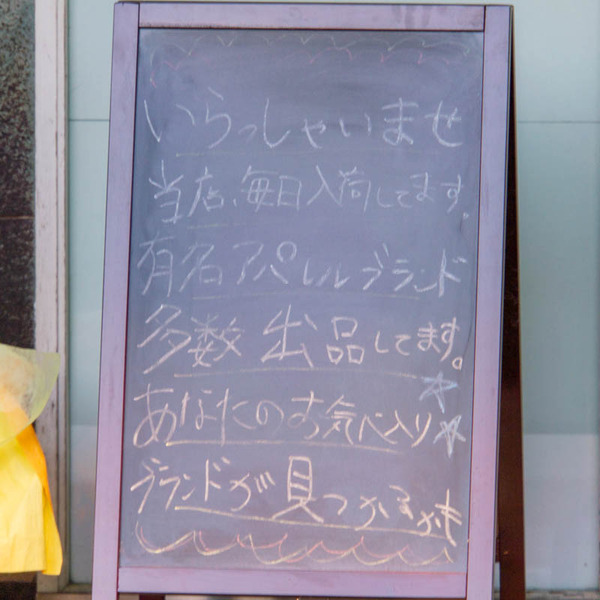 いらっしゃいませ
当店、毎日入荷してます。
有名アパレルブランド
多数出品してます。
あなたのお気に入り☆☆
ブランドが見つかるかも